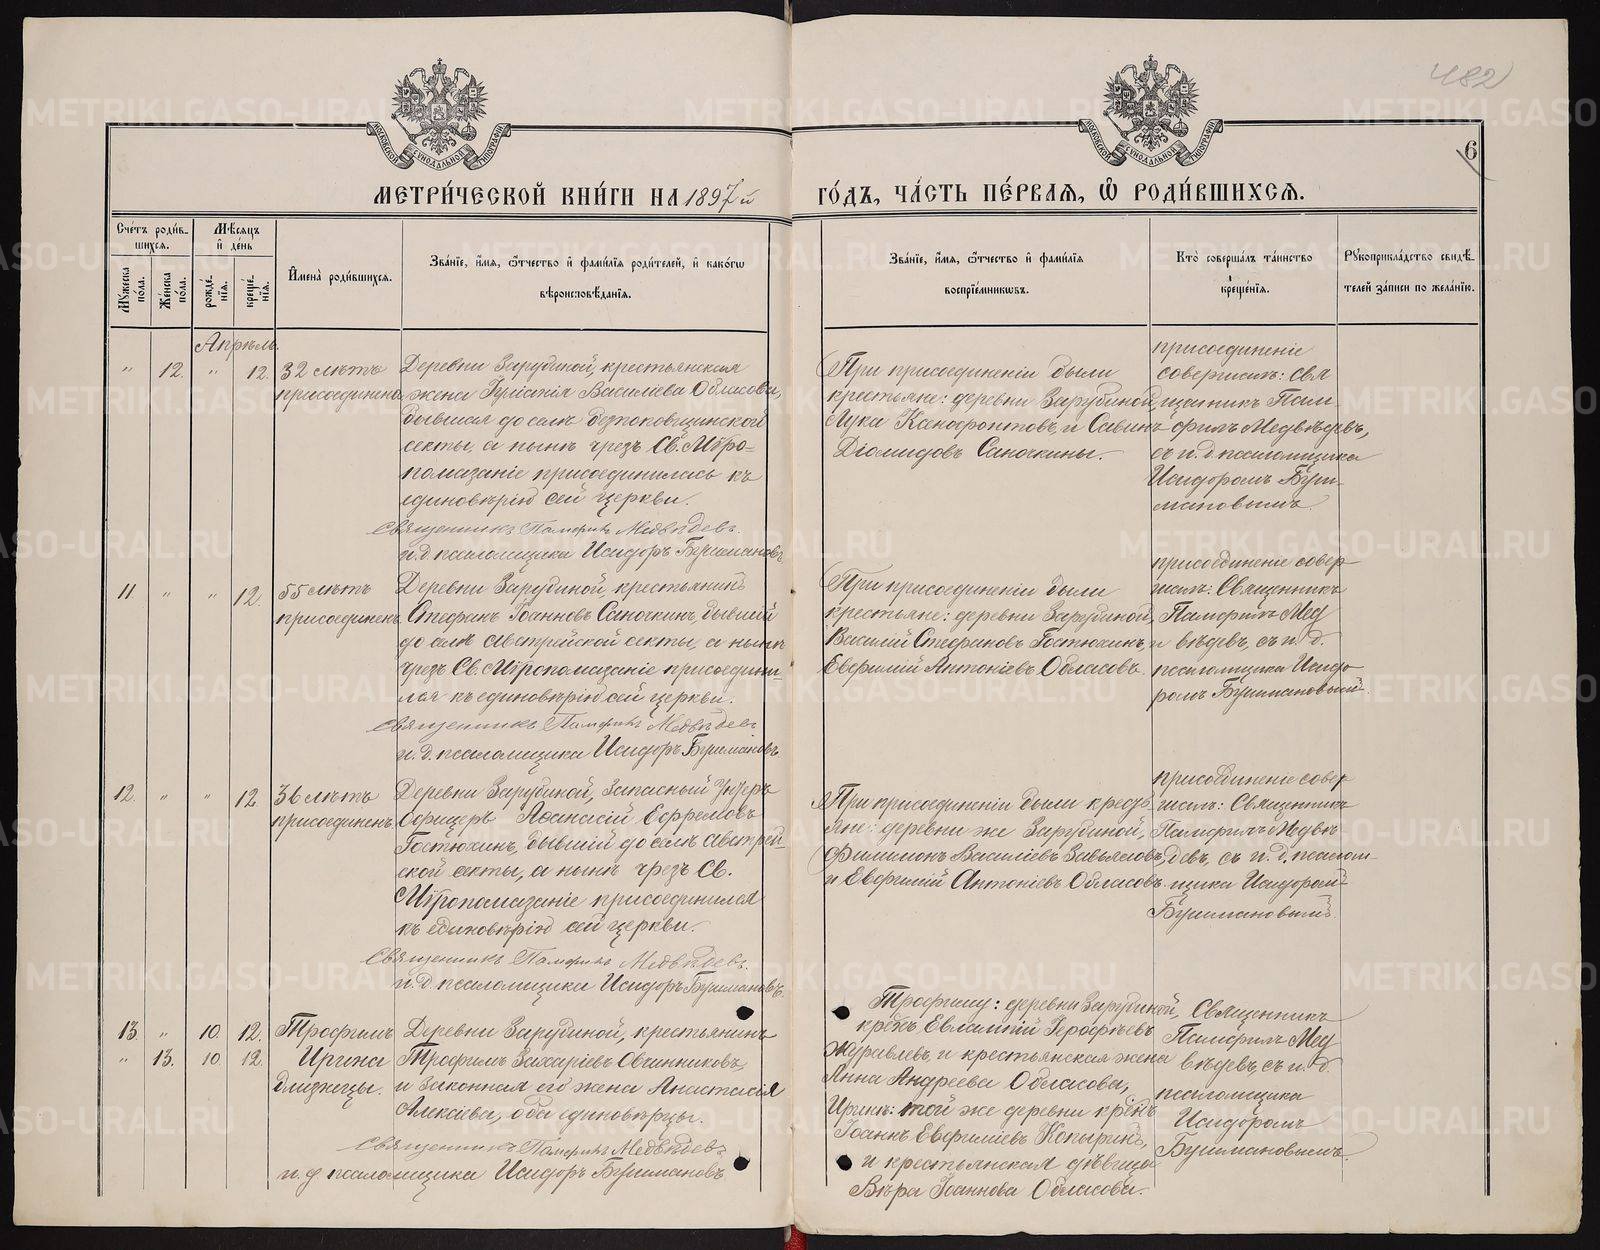 482
6
МОСКОВСКОЙ СѴНОДАЛЬНОЙ ТИПОГРАФІИ
МОСКОВСКОЙ СѴНОДАЛЬНОЙ ТИПОГРАФІИ
МЕТРИ́ЧЕСКОЙ КНИ́ГИ НА 1897й ГО́ДЪ, ЧА́СТЬ ПЕ́РВАЯ, Ѡ҆ РОДИ́ВШИХСЯ.
Сче́тъ роди́в-
шихся.
Му́жеска по́ла.
Же́нска по́ла.
Мѣ́сяцъ и҆ де́нь
рожде́-нїя.
креще́-нїя.
И҆мена̀ роди́вшихся.
Зва́нїе, и҆́мя, ѻ҆́тчество и҆ фами́лїя роди́телей, и҆ како́гѡ
вѣроисповѣ́данїя.
Зва́нїе, и҆́мя, ѻ҆́тчество и҆ фами́лїя
воспрїе́мникѡвъ.
Кто̀ соверша́лъ та́инство
креще́нїя.
Рꙋкоприкла́дство свидѣ́-
телей за́писи по жела́нїю.
Апрѣль.
" 12. " 12. 32 лѣтъ
присоединена
Деревни Зарубиной, крестьянская
жена Василіева Обласова,
бывшая до селѣ Безпоповщинской
секты, а нынѣ чрезъ Св. Мѵро-
помазаніе присоединилась къ
единовѣрію сей церкви.
Священникъ Памфилъ Медвѣдевъ.
и. д. псаломщика Исидоръ Бушмановъ
При присоединеніи были
крестьяне: деревни Зарубиной,
Лука Ксенофонтовъ, и Савинъ
Діомидовъ Саночкины.
присоединеніе
совершилъ: свя
щенникъ Пам-
филъ Медвѣдевъ,
съ и. д. псаломщика
Исидоромъ Буш-
мановымъ
11 " " 12. 55 лѣтъ
присоединенъ
Деревни Зарубиной, крестьянинъ
Стефанъ Іоанновъ Саночкинъ, бывшій
до селѣ Австрійской секты, а нынѣ
чрезъ Св. Мѵропомазаніе присоедини-
лся къ единовѣрію сей церкви.
Священникъ Памфилъ Медвѣдевъ
и. д. псаломщика Исидоръ Бушмановъ
При присоединеніи были
крестьяне: деревни Зарубиной,
Василій Стефановъ Гостюхинъ, и
Евфимій Антоніевъ Обласовъ.
присоединеніе совер
шилъ: Священникъ
Памфилъ Мед
вѣдевъ, съ и. д.
псаломщика Исидо
ромъ Бушмановымъ
12. " " 12 36 лѣтъ
присоединенъ
Деревни Зарубиной, запасный Унтеръ
Офицеръ Аѳанасій Ефремовъ
Гостюхинъ, бывшій до селѣ Австрій-
ской секты, а нынѣ чрезъ Св.
Мѵропомазаніе присоединился
къ единовѣрію сей церкви.
Священникъ Памфилъ Медвѣдевъ.
и. д. псаломщика Исидоръ Бушмановъ.
При присоединеніи были
яне: деревни же Зарубиной,
Филимонъ Василіевъ Завьяловъ,
и Евфимій Антоніевъ Обласовъ.
присоединеніе совер
шилъ: Священникъ
Памфилъ Медвѣ
девъ, съ и. д. псалом-
щика Исидоромъ
Бушмановымъ
13. " 10. 12. Трофимъ
" 13. 10 12. Ирина
близнецы.
Деревни Зарубиной, крестьянинъ
Трофимъ Захаріевъ Овчинниковъ
и законная его жена Анастасія
Алексіева, оба единовѣрцы.
Священникъ Памфилъ Медвѣдевъ
и. д псаломщика Исидоръ Бушмановъ
Трофиму: деревни Зарубиной,
крѣнъ Евлампій Ерофѣевъ
Журавлевъ, и крестьянская жена
Анна Андреева Обласова,
Иринѣ: той же деревни крѣнъ
Іоаннъ Евфиміевъ Копыринъ,
и крестьянская дѣвица
Вѣра Іоаннова Обласова.
Священникъ
Памфилъ Мед
вѣдевъ, съ и. д.
псаломщика
Исидоромъ
Бушмановымъ.
METRIKI.GASO-URAL.RU